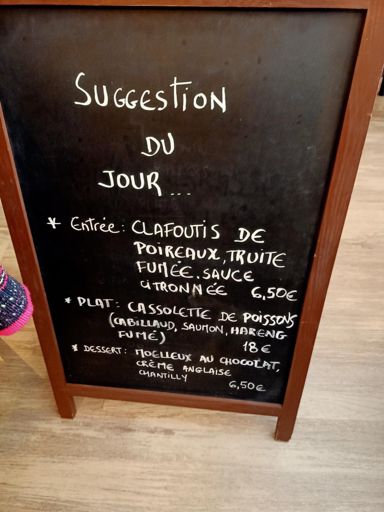 SUGGESTION
DU
JOUR...
* Entrée: CLAFOUTIS DE
POIREAUX, TRUITE
FUMÉE, SAUCE
CITRONNÉE 6,50€
* PLAT: CASSOLETTE DE POISSONS
(CABILLAUD, SAUMON, HARENG
FUMÉ) 18€
* DESSERT: MOELLEUX AU CHOCOLAT,
CRÈME ANGLAISE
CHANTILLY 6,50€